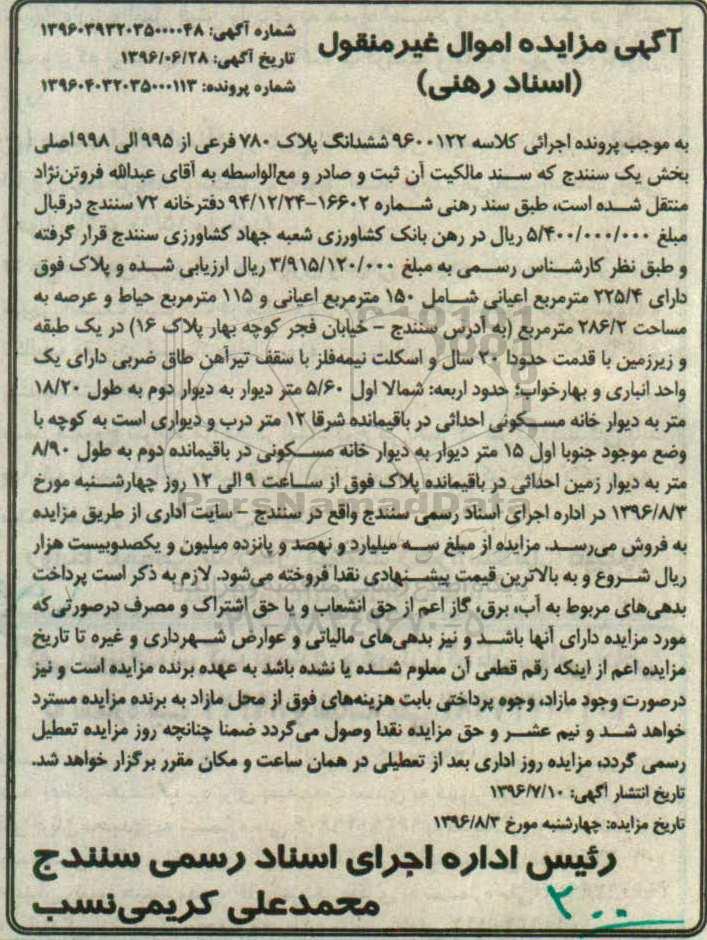 آگهی مزایده اموال غیرمنقول
(اسناد رهنی)
شماره آگهی: ۱۳۹۶۰۳۹۳۲۰۳۵۰۰۰۰۴۸
تاریخ آگهی: ۱۳۹۶/۰۶/۲۸
شماره پرونده: ۱۳۹۶۰۴۰۳۲۰۳۵۰۰۰۱۱۳
به موجب پرونده اجرائی کلاسه ۹۶۰۰۱۲۲ ششدانگ پلاک ۷۸۰ فرعی از ۹۹۵ الی ۹۹۸ اصلی
بخش یک سنندج که سند مالکیت آن ثبت و صادر و مع‌الواسطه به آقای عبدالله فروتن‌نژاد
منتقل شده است، طبق سند رهنی شماره ۱۶۶۰۲-۹۴/۱۲/۲۴ دفترخانه ۷۲ سنندج درقبال
مبلغ ۵/۴۰۰/۰۰۰/۰۰۰ ریال در رهن بانک کشاورزی شعبه جهاد کشاورزی سنندج قرار گرفته
و طبق نظر کارشناس رسمی به مبلغ ۳/۹۱۵/۱۲۰/۰۰۰ ریال ارزیابی شده و پلاک فوق
دارای ۲۲۵/۴ مترمربع اعیانی شامل ۱۵۰ مترمربع اعیانی و ۱۱۵ مترمربع حیاط و عرصه به
مساحت ۲۸۶/۲ مترمربع (به آدرس سنندج - خیابان فجر کوچه بهار پلاک ۱۶) در یک طبقه
و زیرزمین با قدمت حدودا ۳۰ سال و اسکلت نیمه‌فلز با سقف تیرآهن طاق ضربی دارای یک
واحد انباری و بهارخواب؛ حدود اربعه: شمالا اول ۵/۶۰ متر دیوار به دیوار دوم به طول ۱۸/۲۰
متر به دیوار خانه مسکونی احداثی در باقیمانده شرقا ۱۲ متر درب و دیواری است به کوچه با
وضع موجود جنوبا اول ۱۵ متر دیوار به دیوار خانه مسکونی در باقیمانده دوم به طول ۸/۹۰
متر به دیوار زمین احداثی در باقیمانده پلاک فوق از ساعت ۹ الی ۱۲ روز چهارشنبه مورخ
۱۳۹۶/۸/۳ در اداره اجرای اسناد رسمی سنندج واقع در سنندج - سایت اداری از طریق مزایده
به فروش می‌رسد. مزایده از مبلغ سه میلیارد و نهصد و پانزده میلیون و یکصدوبیست هزار
ریال شروع و به بالاترین قیمت پیشنهادی نقدا فروخته می‌شود. لازم به ذکر است پرداخت
بدهی‌های مربوط به آب، برق، گاز اعم از حق انشعاب و یا حق اشتراک و مصرف درصورتی‌که
مورد مزایده دارای آنها باشد و نیز بدهی‌های مالیاتی و عوارض شهرداری و غیره تا تاریخ
مزایده اعم از اینکه رقم قطعی آن معلوم شده یا نشده باشد به عهده برنده مزایده است و نیز
درصورت وجود مازاد، وجوه پرداختی بابت هزینه‌های فوق از محل مازاد به برنده مزایده مسترد
خواهد شد و نیم عشر و حق مزایده نقدا وصول می‌گردد ضمنا چنانچه روز مزایده تعطیل
رسمی گردد، مزایده روز اداری بعد از تعطیلی در همان ساعت و مکان مقرر برگزار خواهد شد.
تاریخ انتشار آگهی: ۱۳۹۶/۷/۱۰
تاریخ مزایده: چهارشنبه مورخ ۱۳۹۶/۸/۳
رئیس اداره اجرای اسناد رسمی سنندج
محمدعلی کریمی‌نسب
ParsNamadData